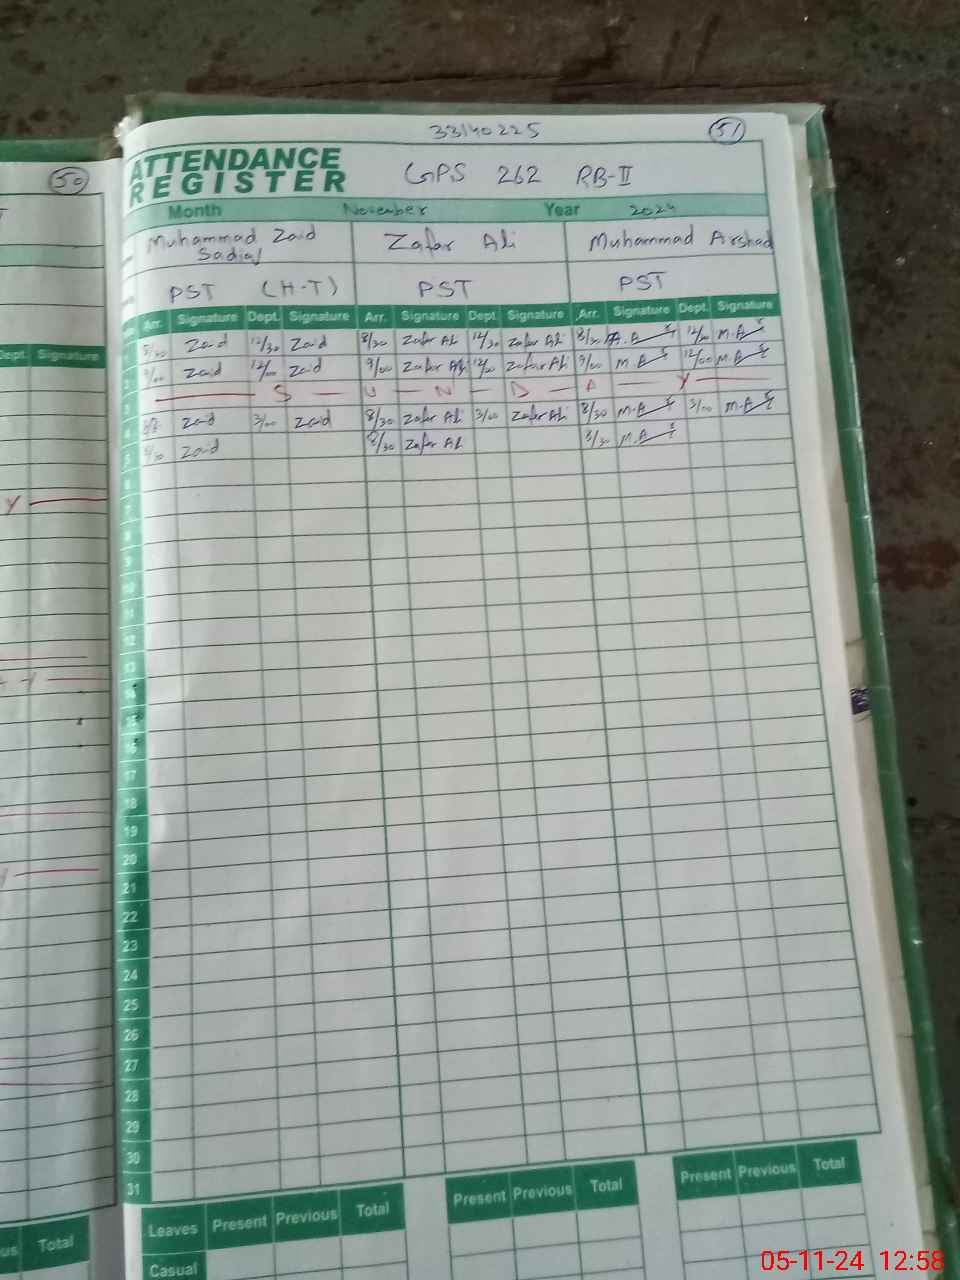 33140225
51
50
ATTENDANCE
REGISTER
GPS 262 RB-II
Month November Year 2024
Muhammad Zaid Zafar Ali Muhammad Arshad
PST (H-T) PST PST
Arr. Signature Dept. Signature Arr. Signature Dept. Signature Arr. Signature Dept. Signature
Dept. Signature
1 8/30 Zaid 12/30 Zaid 8/30 Zafar Ali 12/30 Zafar Ali 8/30
2 9/00 Zaid 12/00 Zaid 9/00 Zafar Ali 12/00 Zafar Ali 9/00 12/00
3 S U N D A Y
4 Zaid 3/00 Zaid 8/30 Zafar Ali 3/00 Zafar Ali 8/30 3/00
5 8/30 Zaid 8/30 Zafar Ali 8/30
6
7
Y
8
9
10
11
12
13
14
15
16
17
18
19
20
21
22
23
24
25
26
27
28
29
30
31
Leaves Present Previous Total Present Previous Total Present Previous Total
Total
Casual
05-11-24 12:58